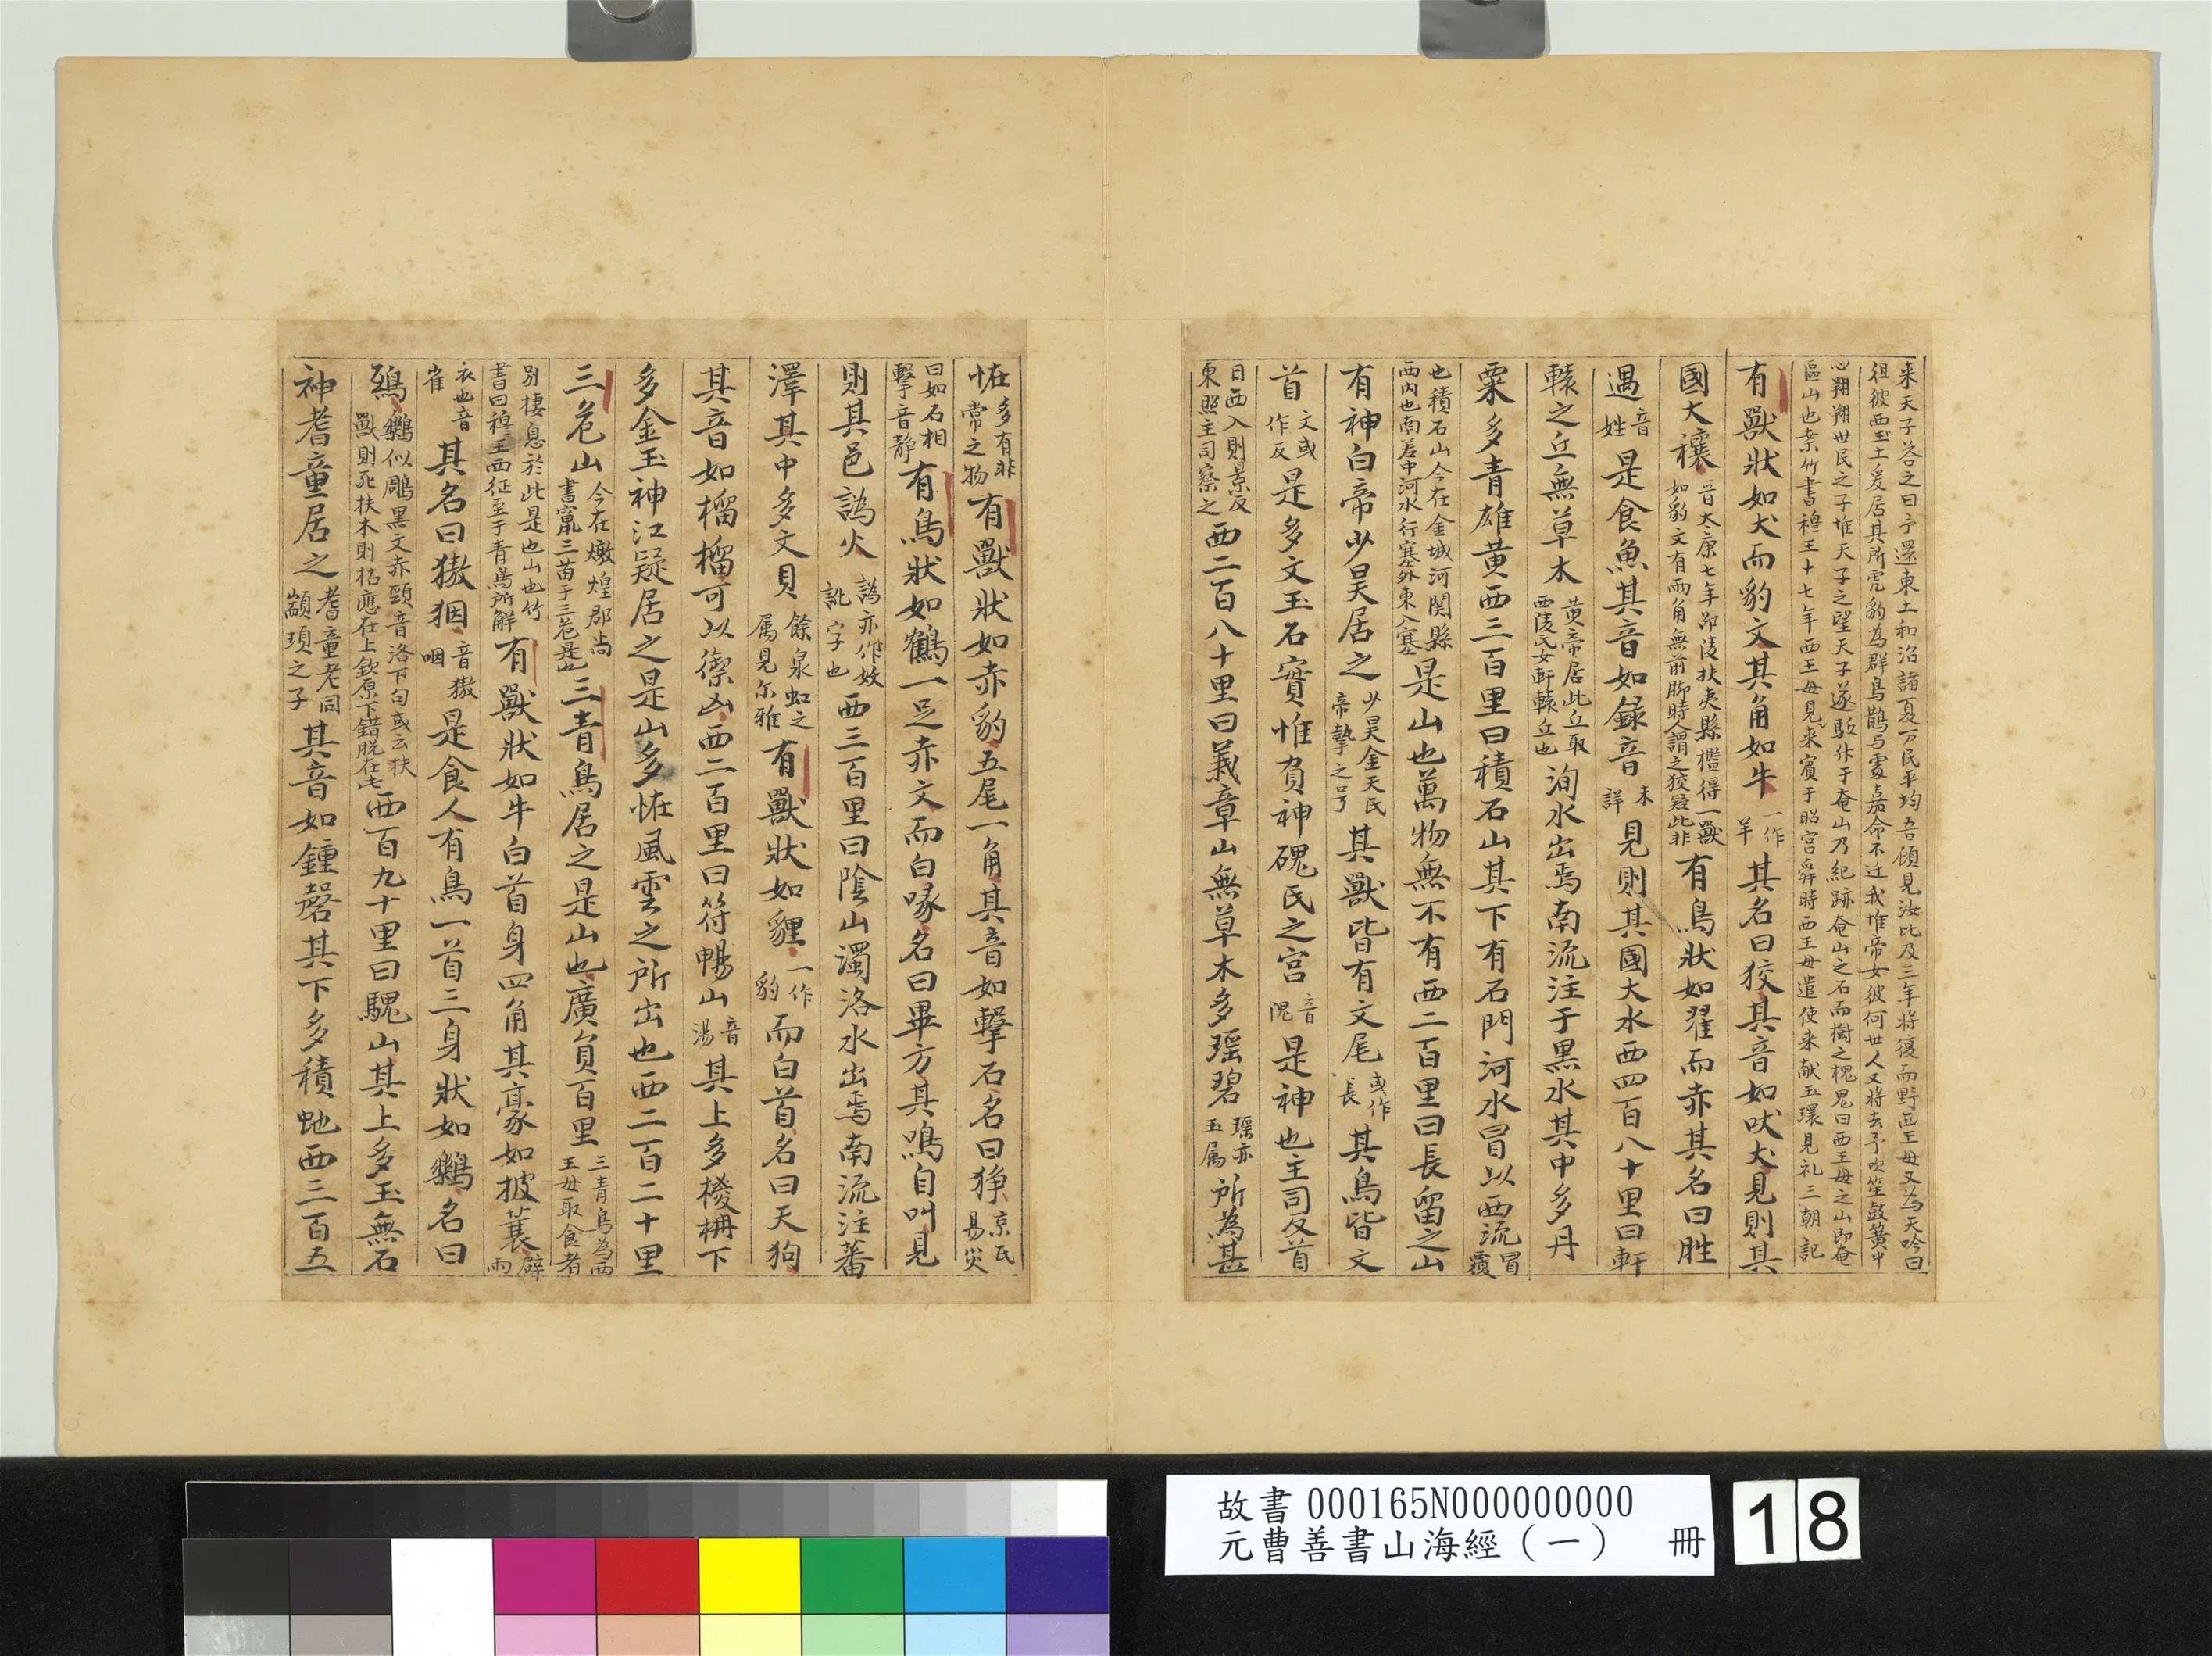 来天子荅之曰予還東土和洽諸夏万民平均吾顧見汝比及三年将復而野西王母又為天吟曰
徂彼西土爰居其所虎豹為群鳥鵲与處嘉命不迁我惟帝女彼何世人又将去予吹笙鼓簧中
心翔翔世民之子惟天子之望天子遂駈升于奄山乃紀跡奄山之石而樹之槐眉曰西王母之山即奄
區山也案竹書穆王十七年西王母見来賓于昭宮舜時西王母遣使来献玉環見礼三朝記
有獸狀如犬而豹文其角如牛一作羊其名曰狡其音如吠犬見則其
國大穰晉太康七年邵陵扶夷縣檻得一獸如豹文有兩角無前脚時人謂之狡疑此非有鳥狀如翟而赤其名曰胜
遇音姓是食魚其音如録音未詳見則其國大水西四百八十里曰軒
轅之丘無草木黄帝居此丘取西陵氏女軒轅丘也洵水出焉南流注于黒水其中多丹
粟多青雄黄西三百里曰積石山其下有石門河水冒以西流冒覆
也積石山今在金城河関縣西内也南羌中河水行塞外東入塞是山也萬物無不有西二百里曰長留之山
有神白帝少昊居之少昊金天氏帝摯之号其獸皆有文尾或作長其鳥皆文
首文或作反是多文玉石實惟員神磈氏之宫音隗是神也主司反首
日西入則景反東照主司察之西二百八十里曰義章山無草木多瑶碧瑶亦玉属所為甚
恠多有非常之物有獸狀如赤豹五尾一角其音如擊石名曰狰京氏易災
曰如石相擊音静有鳥狀如鶴一足赤文而白喙名曰畢方其鳴自叫見
則其邑譌火譌亦作妖訛字也西三百里曰陰山濁洛水出焉南流注蕃
澤其中多文貝餘泉虹之属見尓雅有獸狀如貍一作豹而白首名曰天狗
其音如榴榴可以禦凶西二百里曰符惕山音湯其上多椶枏下
多金玉神江疑居之是山多恠風雲之所出也西二百二十里
三危山今在燉煌郡尚書竄三苗于三危是也三青鳥居之是山也廣員百里三青鳥為西王母取食者
别棲息於此是也山也竹書曰穆王西征至于青鳥所解有獸狀如牛白首身四角其豪如披蓑辟雨
衣也音崔其名曰獓𤝱音獓咽是食人有鳥一首三身狀如鸈名曰
鴟鸈似鵰黑文赤頸音洛下句或云扶獸則死扶木則枯應在上欽原下錯脱在此西百九十里曰騩山其上多玉無石
神耆童居之耆童老同顓頊之子其音如鍾磬其下多積虵西三百五
故書000165N000000000
元曹善書山海經（一） 冊
18